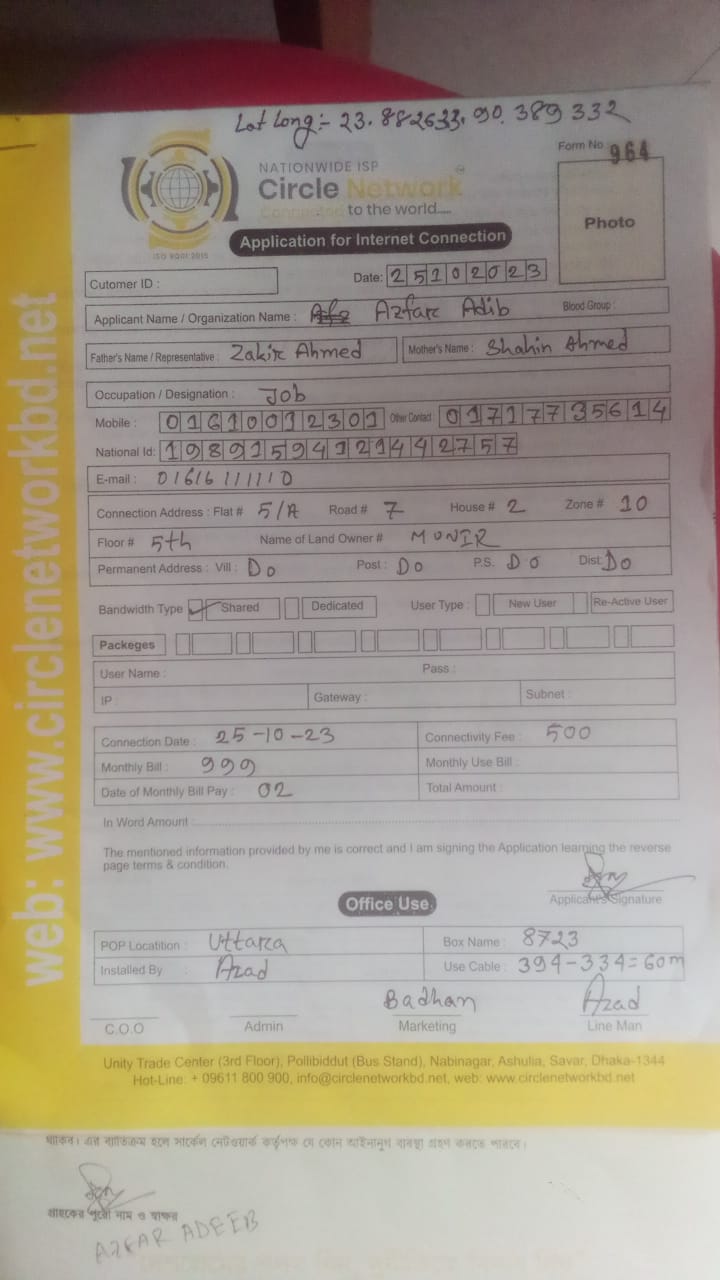 Lat Long:- 23.882633, 90.389332
NATIONWIDE ISP
Form No 964
Circle Network
Connected to the world.....
ISO 9001:2015
Photo
Application for Internet Connection
Cutomer ID :
Date: 25102023
Applicant Name / Organization Name : Azfar Adib Blood Group :
Father's Name / Representative : Zakir Ahmed Mother's Name : Shahin Ahmed
Occupation / Designation : Job
Mobile : 01610012301 Other Contact 01717735614
National Id: 19891594121442757
E-mail : 01616111110
Connection Address : Flat # 5/A Road # 7 House # 2 Zone # 10
Floor # 5th Name of Land Owner # MONIR
Permanent Address : Vill : Do Post : Do P.S. Do Dist: Do
Bandwidth Type ✓ Shared Dedicated User Type : New User Re-Active User
Packeges
User Name : Pass :
IP : Gateway : Subnet :
Connection Date : 25-10-23 Connectivity Fee : 500
Monthly Bill : 999 Monthly Use Bill :
Date of Monthly Bill Pay : 02 Total Amount :
In Word Amount :
The mentioned information provided by me is correct and I am signing the Application learning the reverse
page terms & condition.
Applicant's Signature
Office Use
POP Locatition : Uttara Box Name : 8723
Installed By : Azad Use Cable : 394-334=60m
Badhan Azad
C.O.O Admin Marketing Line Man
Unity Trade Center (3rd Floor), Pollibiddut (Bus Stand), Nabinagar, Ashulia, Savar, Dhaka-1344
Hot-Line: + 09611 800 900, info@circlenetworkbd.net, web: www.circlenetworkbd.net
web: www.circlenetworkbd.net
থাকিব। এর ব্যতিক্রম হলে সার্কেল নেটওয়ার্ক কর্তৃপক্ষ যে কোন আইনানুগ ব্যবস্থা গ্রহণ করতে পারবে।
গ্রাহকের পুরো নাম ও স্বাক্ষর
AZFAR ADEEB